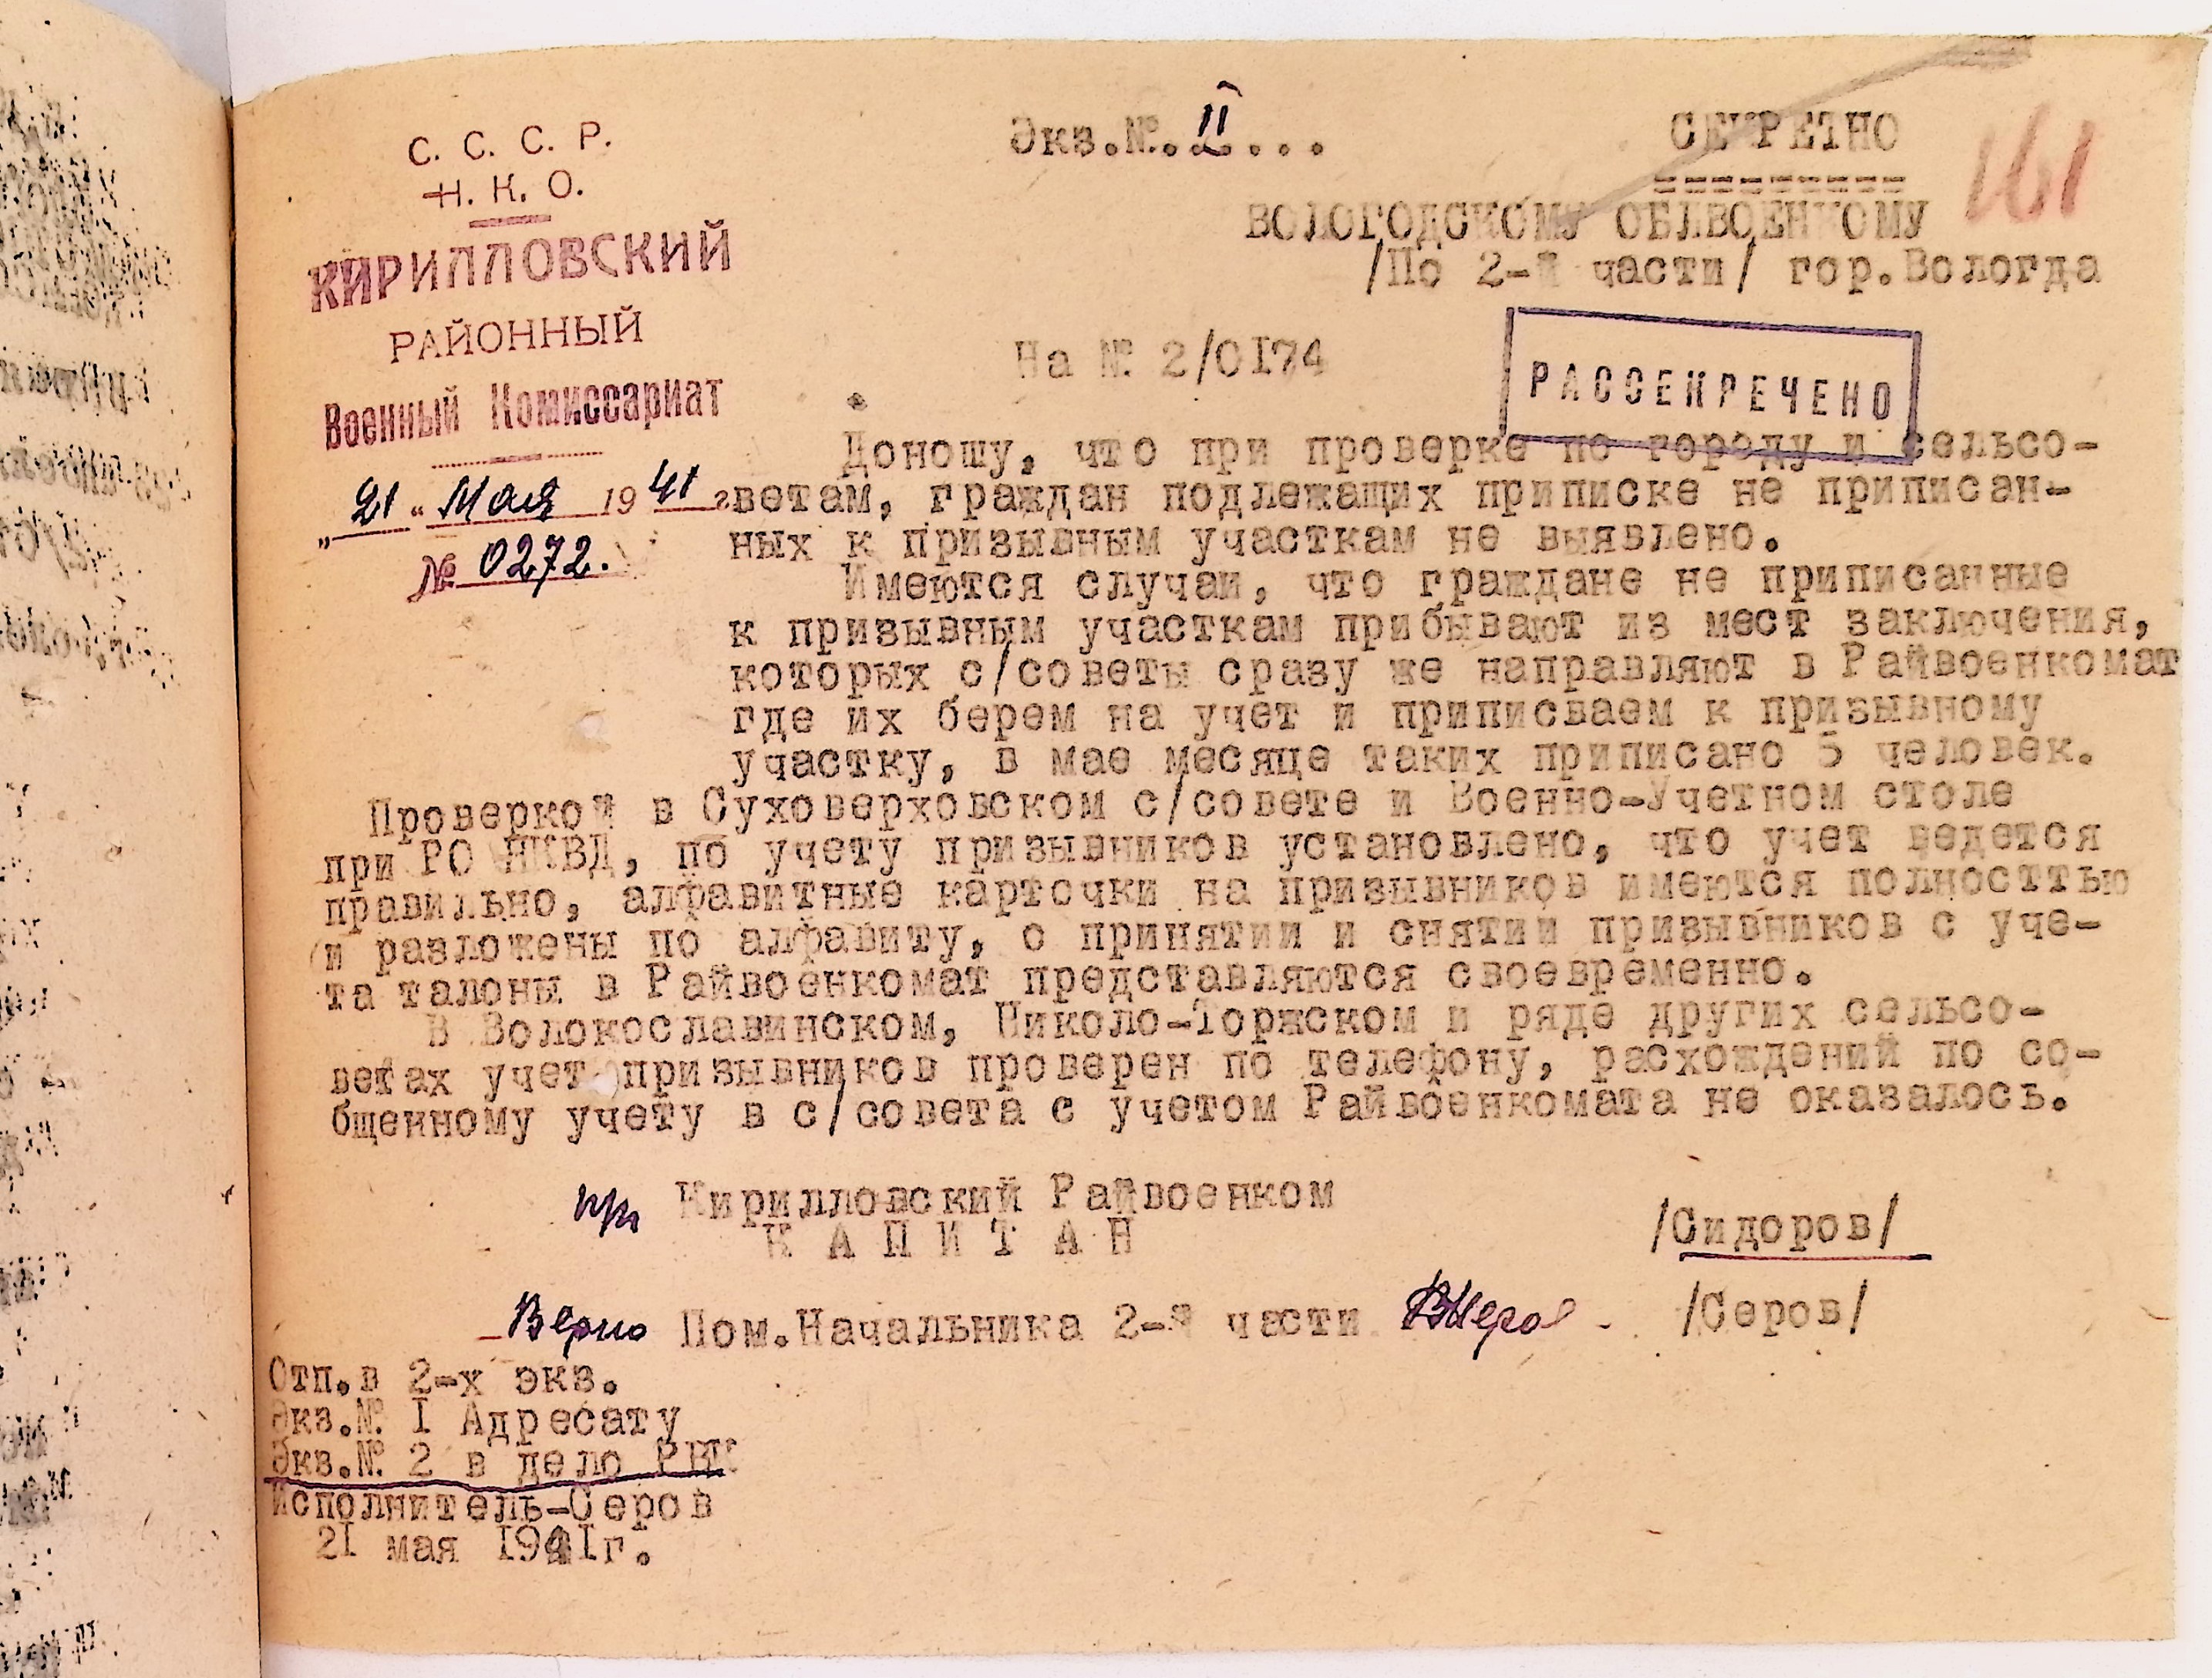 С. С. С. Р.
Н. К. О.
КИРИЛЛОВСКИЙ
РАЙОННЫЙ
Военный Комиссариат
"21" Мая 1941 г.
№ 0272.
Экз.№.II...
СЕКРЕТНО
=========
161
ВОЛОГОДСКОМУ ОБЛВОЕНКОМУ
/По 2-й части/ гор.Вологда
На № 2/0I74
РАССЕКРЕЧЕНО
Доношу, что при проверке по городу и сельсо-
ветам, граждан подлежащих приписке не приписан-
ных к призывным участкам не выявлено.
Имеются случаи, что граждане не приписанные
к призывным участкам прибывают из мест заключения,
которых с/советы сразу же направляют в Райвоенкомат
где их берем на учет и приписваем к призывному
участку, в мае месяце таких приписано 5 человек.
Проверкой в Суховерховском с/совете и Военно-Учетном столе
при РО НКВД, по учету призывников установлено, что учет ведется
правильно, алфавитные карточки на призывников имеются полносттью
и разложены по алфавиту, о принятии и снятии призывников с уче-
та талоны в Райвоенкомат представляются своевременно.
В Волокославинском, Николо-Торжском и ряде других сельсо-
ветах учет призывников проверен по телефону, расхождений по со-
бщенному учету в с/совета с учетом Райвоенкомата не оказалось.
Кирилловский Райвоенком
К А П И Т А Н
/Сидоров/
Верно Пом.Начальника 2-й части
/Серов/
Отп.в 2-х экз.
Экз.№ I Адресату
Экз.№ 2 в дело РВК
Исполнитель-Серов
2I мая I94Iг.